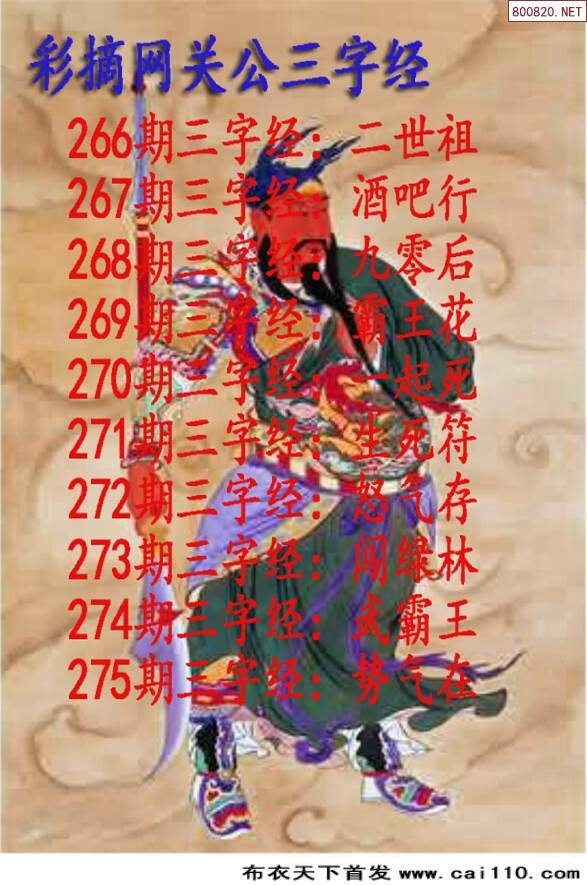 800820.NET
彩摘网关公三字经
266期三字经：二世祖
267期三字经：酒吧行
268期三字经：九零后
269期三字经：霸王花
270期三字经：一起死
271期三字经：生死符
272期三字经：怒气存
273期三字经：闯绿林
274期三字经：武霸王
275期三字经：势气在
布衣天下首发 www.cai110.com